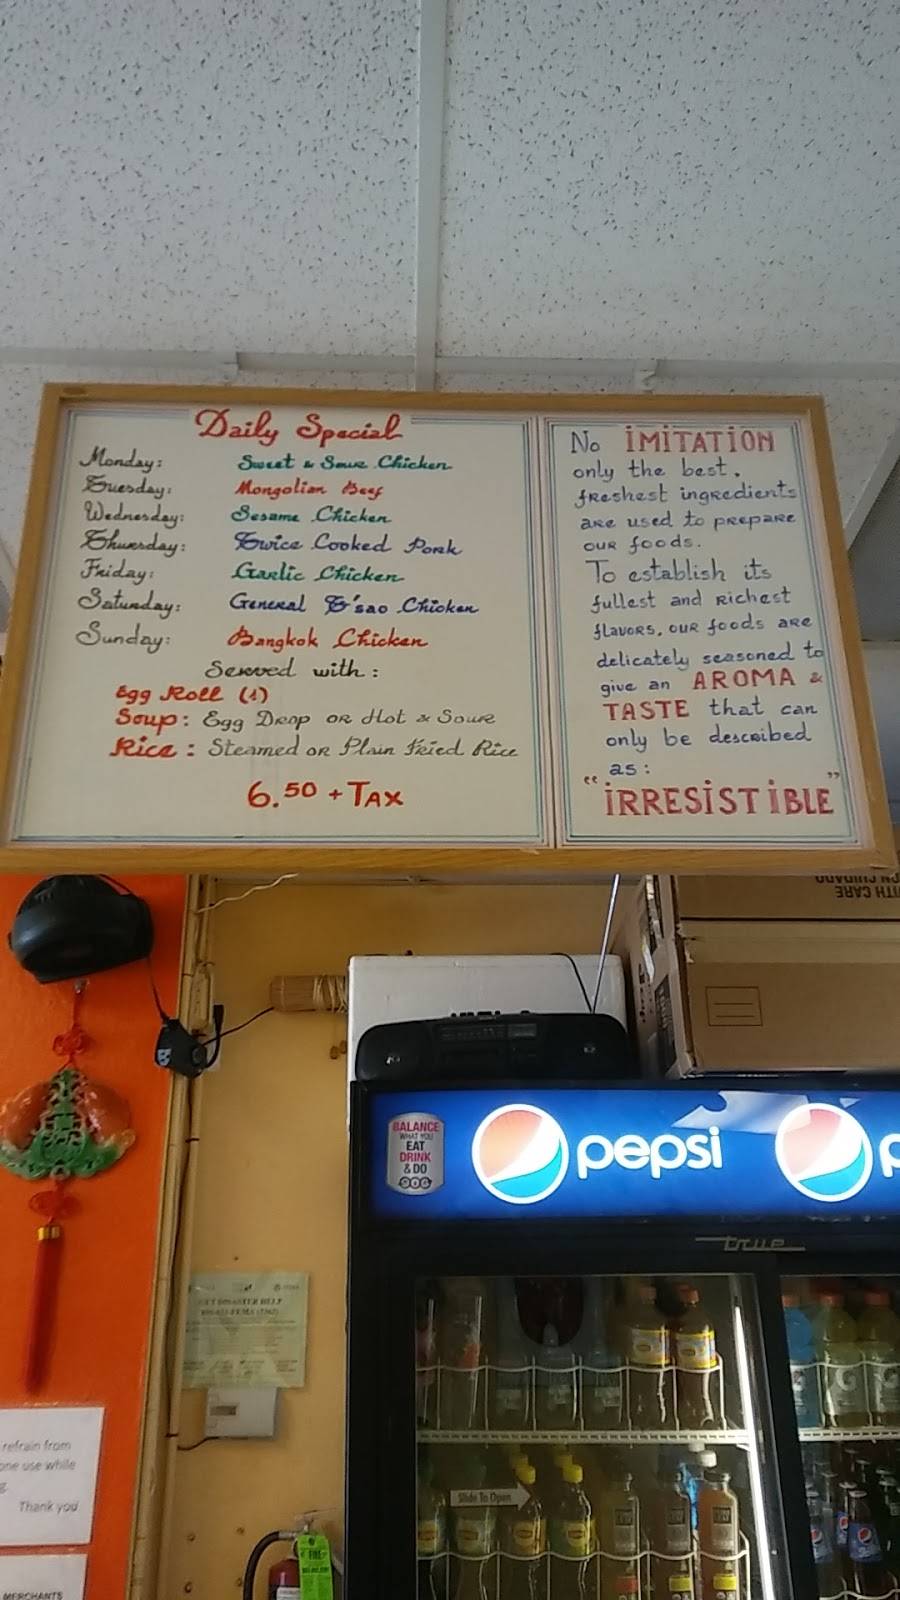 Daily Special
Monday: Sweet & Sour Chicken
Tuesday: Mongolian Beef
Wednesday: Sesame Chicken
Thursday: Twice Cooked Pork
Friday: Garlic Chicken
Saturday: General T'sao Chicken
Sunday: Bangkok Chicken
Served with:
Egg Roll (1)
Soup: Egg Drop or Hot & Sour
Rice: Steamed or Plain Fried Rice
6.50 + TAX
No IMITATION
only the best.
freshest ingredients
are used to prepare
our foods.
To establish its
fullest and richest
flavors, our foods are
delicately seasoned to
give an AROMA &
TASTE that can
only be described
as:
"IRRESISTIBLE"
WITH CARE
BALANCE
WHAT YOU
EAT
DRINK
& DO
pepsi
p
true
Slide To Open
refrain from
one use while
Thank you
MERCHANTS
FIRE